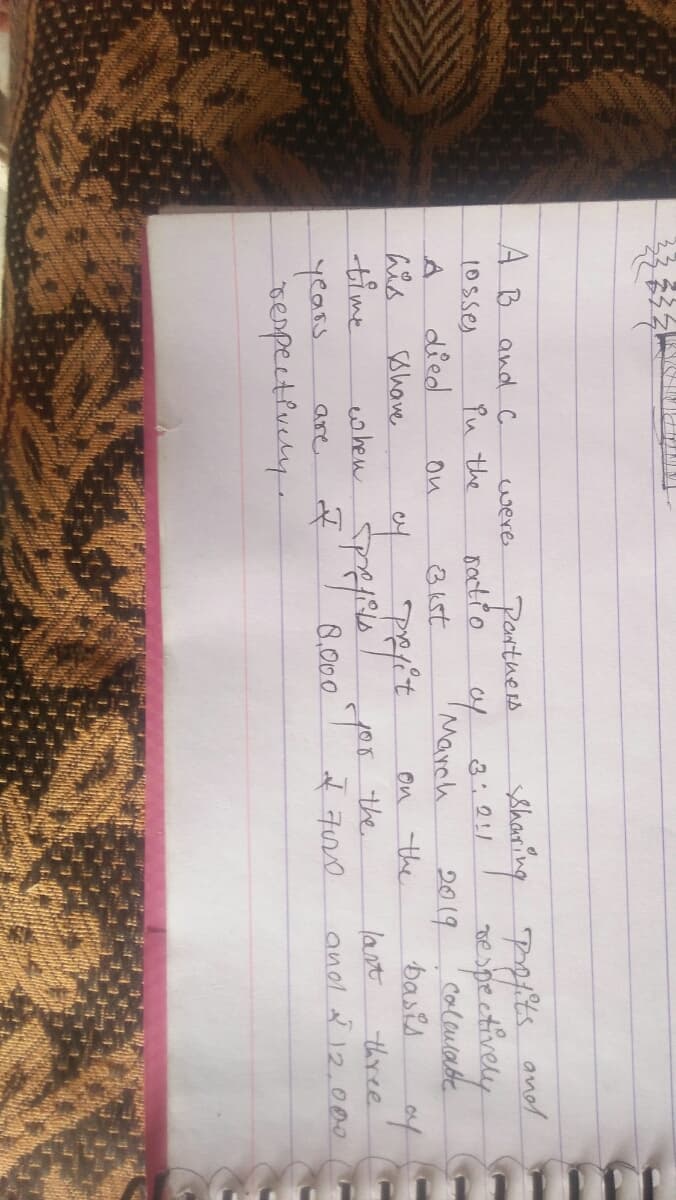 A B and C were partners sharing profits and
losses in the ratio of 3:2:1 respectively
A died on 31st March 2019 calculate
his share of profit on the basis of
time when profits for the last three
years are ₹ 8,000 ₹ 7000 and ₹ 12,000
respectively.